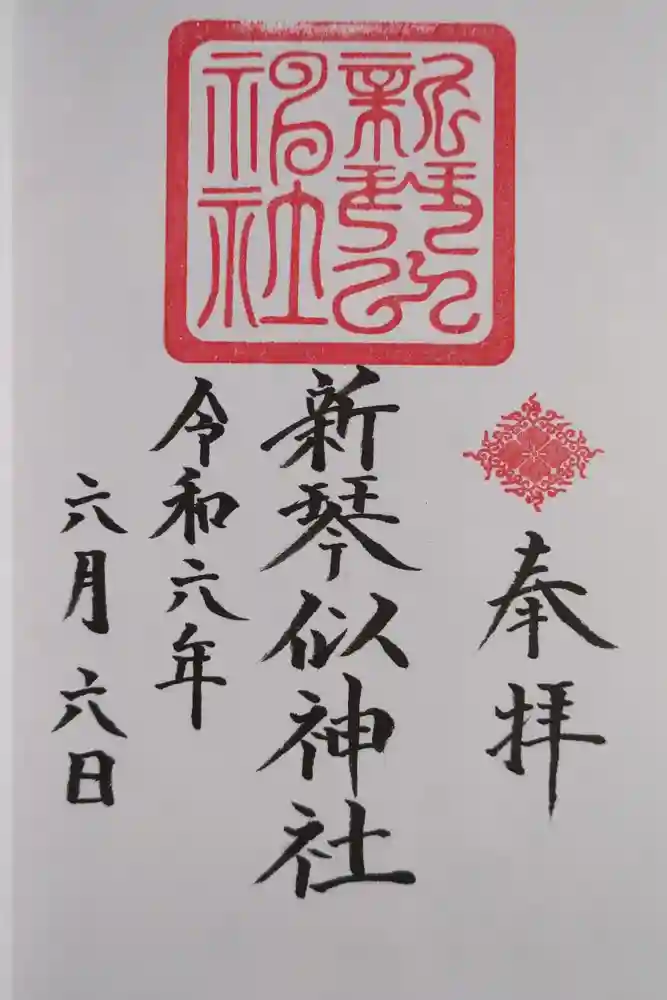 奉拝
新琴似神社
令和六年
六月六日
新琴似
神社